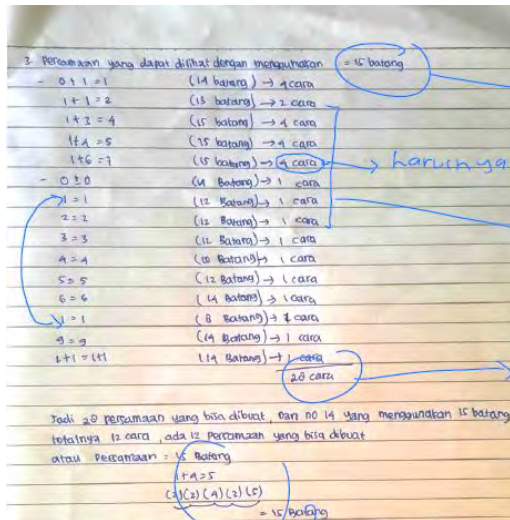 3. Persamaan yang dapat dilihat dengan menggunakan = 15 batang
- 0 + 1 = 1 (14 batang) → 4 cara
1 + 1 = 2 (13 batang) → 2 cara
1 + 3 = 4 (15 batang) → 4 cara
1 + 4 = 5 (15 batang) → 4 cara
1 + 6 = 7 (15 batang) → 4 cara → harusnya
- 0 ± 0 Batang) → 1 cara
1 = 1 (12 Batang) → 1 cara
2 = 2 (12 Batang) → 1 cara
3 = 3 (12 Batang) → 1 cara
4 = 4 (10 Batang) → 1 cara
5 = 5 (12 Batang) → 1 cara
6 = 6 (14 Batang) → 1 cara
1 = 1 (8 Batang) → cara
9 = 9 (14 Batang) → 1 cara
1+1 = 1+1 (14 Batang) → 1 cara
28 cara
Jadi 28 persamaan yang bisa dibuat, Dan no 14 yang menggunakan 15 batang
totalnya 12 cara, ada 12 persamaan yang bisa dibuat
atau Persamaan = 15 Batang
1 + 4 = 5
(2)(2)(4)(2)(5)
= 15 Batang